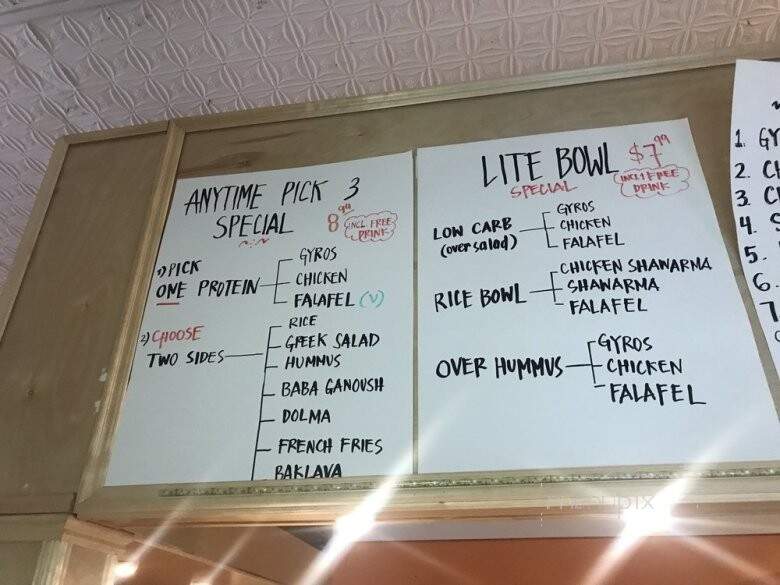 ANYTIME PICK 3
SPECIAL 8.99 INCL FREE DRINK
1) PICK
ONE PROTEIN
GYROS
CHICKEN
FALAFEL (V)
2) CHOOSE
TWO SIDES
RICE
GREEK SALAD
HUMMUS
BABA GANOUSH
DOLMA
FRENCH FRIES
BAKLAVA
LITE BOWL $7.99
SPECIAL
INCL FREE
DRINK
LOW CARB
(over salad)
GYROS
CHICKEN
FALAFEL
RICE BOWL
CHICKEN SHAWARMA
SHAWARMA
FALAFEL
OVER HUMMUS
GYROS
CHICKEN
FALAFEL
1. GY
2. CH
3. C
4. S
5.
6.
7